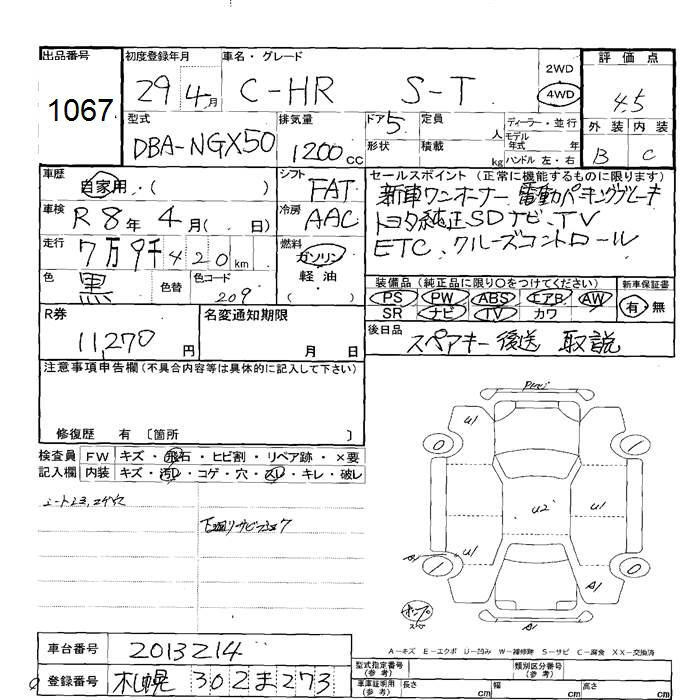 出品番号 初度登録年月 車名・グレード 評価点
1067 29年 4月 C-HR S-T 2WD 4WD 4.5
型式 排気量 ドア 5 定員 人 ディーラー・並行 外装 内装
DBA-NGX50 1200cc 形状 積載 kg モデル年式 年 ハンドル 左・右 B C
車歴 自家用・( ) シフト FAT セールスポイント(正常に機能するものに限ります)
車検 R8年 4月( 日) 冷房 AAC 新車ワンオーナー 電動パーキングブレーキ
トヨタ純正SDナビ、TV
走行 7万9千420km 燃料 ガソリン ETC、クルーズコントロール
色 黒 色替 色コード 209 軽油 ( )
装備品(純正品に限り○をつけてください) 新車保証書
PS PW ABS エアB AW 有・無
SR ナビ TV カワ
R券 11,270円 名変通知期限 月 日
後日品 スペアキー後送 取説
注意事項申告欄(不具合内容等は具体的に記入して下さい)
修復歴 有 〔箇所 〕
検査員 FW キズ・飛石・ヒビ割・リペア跡・×要
記入欄 内装 キズ・汚れ・コゲ・穴・スレ・キレ・破レ
下廻りサビ
U1 U1
0 1
U2 U1
A1 U1
1 0
A1
A1
A−キズ E−エクボ U−凹み W−補修跡 S−サビ C−腐食 XX−交換済
車台番号 2013214
登録番号 札幌 302ま273
型式指定番号(参考) 類別区分番号(参考)
車庫証明用(参考) 長さ cm 幅 cm 高さ cm